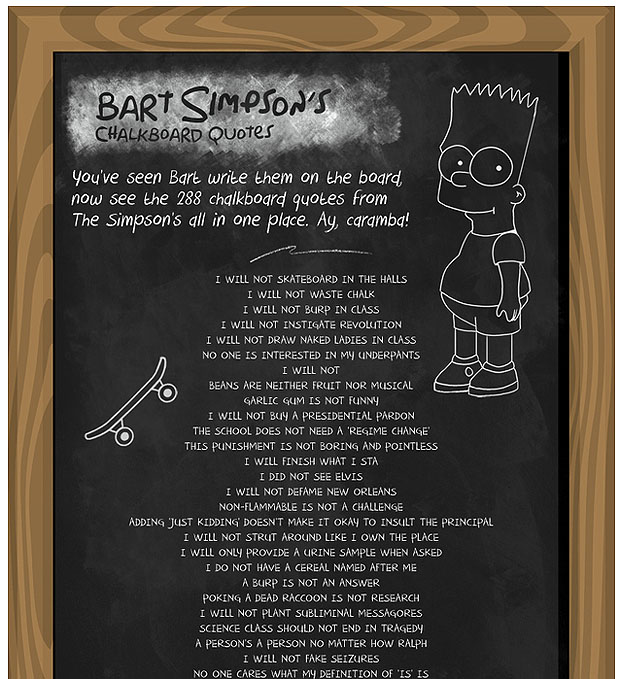 BART SIMPSON'S
CHALKBOARD QUOTES
You've seen Bart write them on the board,
now see the 288 chalkboard quotes from
The Simpson's all in one place. Ay, caramba!
I WILL NOT SKATEBOARD IN THE HALLS
I WILL NOT WASTE CHALK
I WILL NOT BURP IN CLASS
I WILL NOT INSTIGATE REVOLUTION
I WILL NOT DRAW NAKED LADIES IN CLASS
NO ONE IS INTERESTED IN MY UNDERPANTS
I WILL NOT
BEANS ARE NEITHER FRUIT NOR MUSICAL
GARLIC GUM IS NOT FUNNY
I WILL NOT BUY A PRESIDENTIAL PARDON
THE SCHOOL DOES NOT NEED A 'REGIME CHANGE'
THIS PUNISHMENT IS NOT BORING AND POINTLESS
I WILL FINISH WHAT I STA
I DID NOT SEE ELVIS
I WILL NOT DEFAME NEW ORLEANS
NON-FLAMMABLE IS NOT A CHALLENGE
ADDING 'JUST KIDDING' DOESN'T MAKE IT OKAY TO INSULT THE PRINCIPAL
I WILL NOT STRUT AROUND LIKE I OWN THE PLACE
I WILL ONLY PROVIDE A URINE SAMPLE WHEN ASKED
I DO NOT HAVE A CEREAL NAMED AFTER ME
A BURP IS NOT AN ANSWER
POKING A DEAD RACCOON IS NOT RESEARCH
I WILL NOT PLANT SUBLIMINAL MESSAGORES
SCIENCE CLASS SHOULD NOT END IN TRAGEDY
A PERSON'S A PERSON NO MATTER HOW RALPH
I WILL NOT FAKE SEIZURES
NO ONE CARES WHAT MY DEFINITION OF 'IS' IS